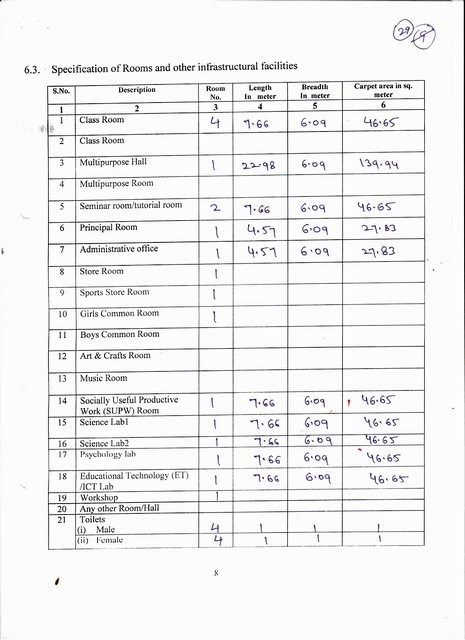 29
9
6.3. Specification of Rooms and other infrastructural facilities
S.No. Description Room No. Length In meter Breadth In meter Carpet area in sq. meter
1 2 3 4 5 6
1 Class Room 4 7.66 6.09 46.65
2 Class Room
3 Multipurpose Hall 1 22.98 6.09 139.94
4 Multipurpose Room
5 Seminar room/tutorial room 2 7.66 6.09 46.65
6 Principal Room 1 4.57 6.09 27.83
7 Administrative office 1 4.57 6.09 27.83
8 Store Room 1
9 Sports Store Room 1
10 Girls Common Room 1
11 Boys Common Room
12 Art & Crafts Room
13 Music Room
14 Socially Useful Productive
Work (SUPW) Room 1 7.66 6.09 46.65
15 Science Lab1 1 7.66 6.09 46.65
16 Science Lab2 1 7.66 6.09 46.65
17 Psychology lab 1 7.66 6.09 46.65
18 Educational Technology (ET)
/ICT Lab 1 7.66 6.09 46.65
19 Workshop 1
20 Any other Room/Hall
21 Toilets
(i) Male 4 1 1 1
(ii) Female 4 1 1 1
8